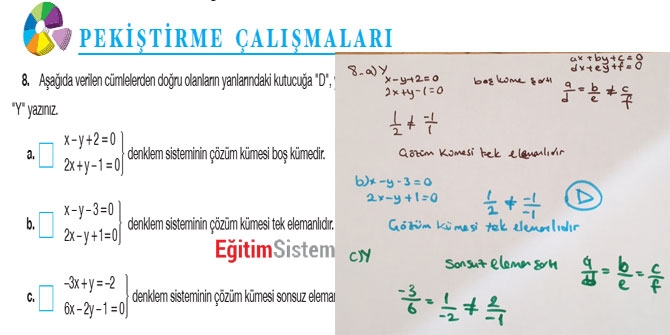 PEKİŞTİRME ÇALIŞMALARI
8. Aşağıda verilen cümlelerden doğru olanların yanlarındaki kutucuğa "D",
"Y" yazınız.
a. x-y+2=0
2x+y-1=0 denklem sisteminin çözüm kümesi boş kümedir.
b. x-y-3=0
2x-y+1=0 denklem sisteminin çözüm kümesi tek elemanlıdır.
EğitimSistem
c. -3x+y=-2
6x-2y-1=0 denklem sisteminin çözüm kümesi sonsuz
8-a) Y
x-y+2=0
2x+y-1=0
boş küme şartı
ax+by+c=0
dx+ey+f=0
a/d = b/e ≠ c/f
1/2 ≠ -1/1
Çözüm Kümesi tek elemanlıdır
b) x-y-3=0
2x-y+1=0
1/2 ≠ -1/-1
D
Çözüm Kümesi tek elemanlıdır
c) Y
Sonsuz eleman şartı
a/d = b/e = c/f
-3/6 = 1/-2 ≠ 2/-1